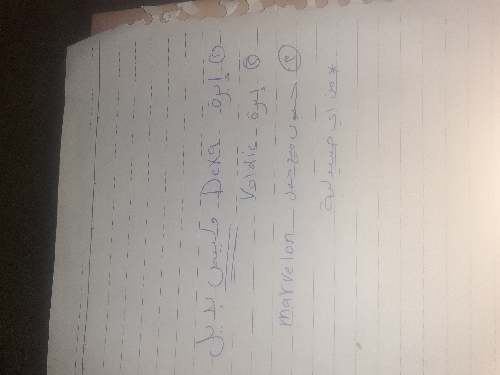 ① إبرة Dexa وليس بديل
② إبرة - Voldic
③ حبوب منع حمل marvelon
*من اي صيدلية